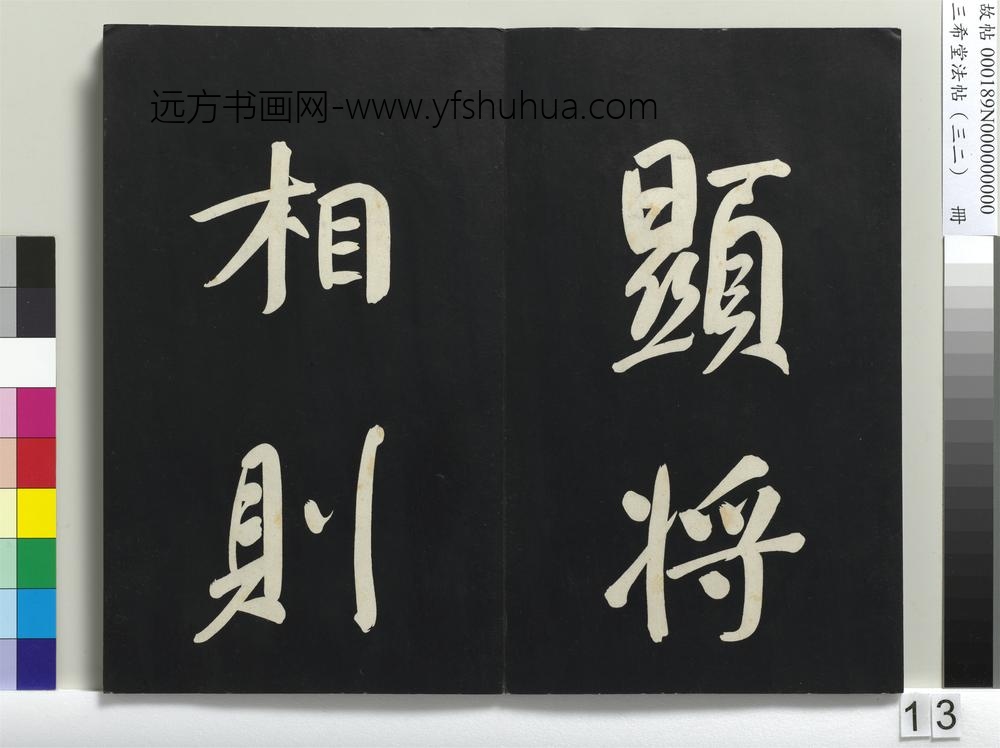 远方书画网-www.yfshuhua.com
顯将
相則
故帖 000189N000000000
三希堂法帖（三二） 冊
13